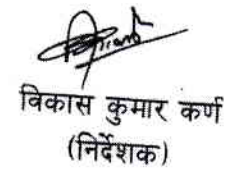 विकास कुमार कर्ण
(निर्देशक)